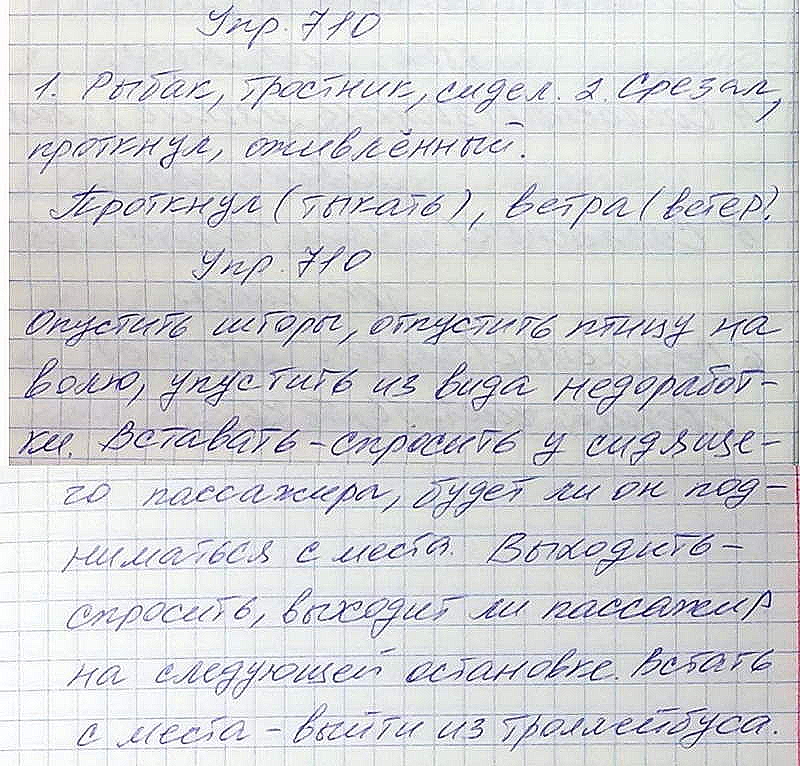 Упр. 710
1. Рыбак, тростник, сидел. 2. Срезал,
проткнул, оживлённый.
Проткнул (тыкать), ветра (ветер).
Упр. 710
Опустить шторы, отпустить птицу на
волю, упустить из вида недоработ-
ки. Вставать - спросить у сидяще-
го пассажира, будет ли он под-
ниматься с места. Выходить -
спросить, выходит ли пассажир
на следующей остановке. Встать
с места - выйти из троллейбуса.